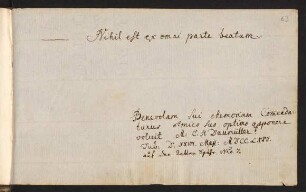 Nihil est ex omni parte beatum
Benevolam sui Memoriam Commenda
turus Amico suo optimo apponere
voluit M. C. H. Daumüller
D. XXVI. May. MDCCLXXV.
auf der